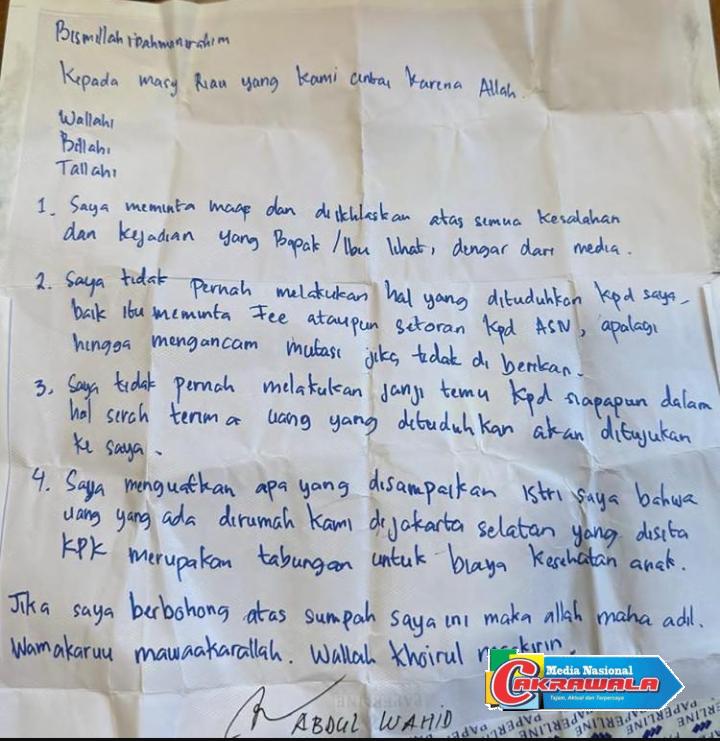 Bismillahirahmanirahim
Kepada masy Riau yang kami cintai karena Allah.
Wallahi
Billahi
Tallahi
1. Saya meminta maaf dan diikhlaskan atas semua kesalahan
dan kejadian yang Bapak/Ibu lihat, dengar dari media.
2. Saya tidak pernah melakukan hal yang dituduhkan kpd saya,
baik itu meminta Fee ataupun setoran kpd ASN, apalagi
hingga mengancam mutasi jika tidak di berikan.
3. Saya tidak pernah melakukan janji temu kpd siapapun dalam
hal serah terima uang yang dituduhkan akan ditujukan
ke saya.
4. Saya menguatkan apa yang disampaikan istri saya bahwa
uang yang ada dirumah kami di Jakarta selatan yang disita
KPK merupakan tabungan untuk biaya kesehatan anak.
Jika saya berbohong atas sumpah saya ini maka allah maha adil.
Wamakaruu mawaakarallah. Wallah khoirul
ABDUL WAHID
Media Nasional
CAKRAWALA
Tajam, Aktual dan Terpercaya
PAPERLINE PAPERLINE PAPERLINE